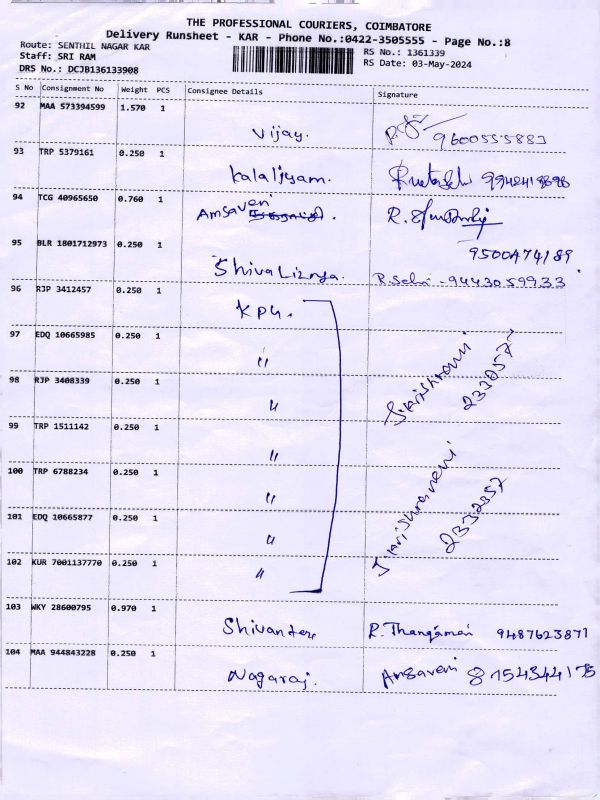 THE PROFESSIONAL COURIERS, COIMBATORE
Delivery Runsheet - KAR - Phone No.:0422-3505555 - Page No.:8
Route: SENTHIL NAGAR KAR
RS No.: 1361339
Staff: SRI RAM
RS Date: 03-May-2024
DRS No.: DCJB136133908
S No Consignment No Weight PCS Consignee Details Signature
92 MAA 573394599 1.570 1
Vijay. 9600555883
93 TRP 5379161 0.250 1
Kalaliyam. 9942419898
94 TCG 40965650 0.760 1
Amsaven
95 BLR 1801712973 0.250 1
9500474189
ShivaLiznya. R.Selvi - 9443059933
96 RJP 3412457 0.250 1
KPU.
97 EDQ 10665985 0.250 1
"
98 RJP 3408339 0.250 1
" 2332357
99 TRP 1511142 0.250 1
"
100 TRP 6788234 0.250 1
"
101 EDQ 10665877 0.250 1
" 2332357
102 KUR 7001137770 0.250 1
"
103 WKY 28600795 0.970 1
R. Thangamani 9487623871
104 MAA 944843228 0.250 1
Nagaraj. Amsaveni 8154344175